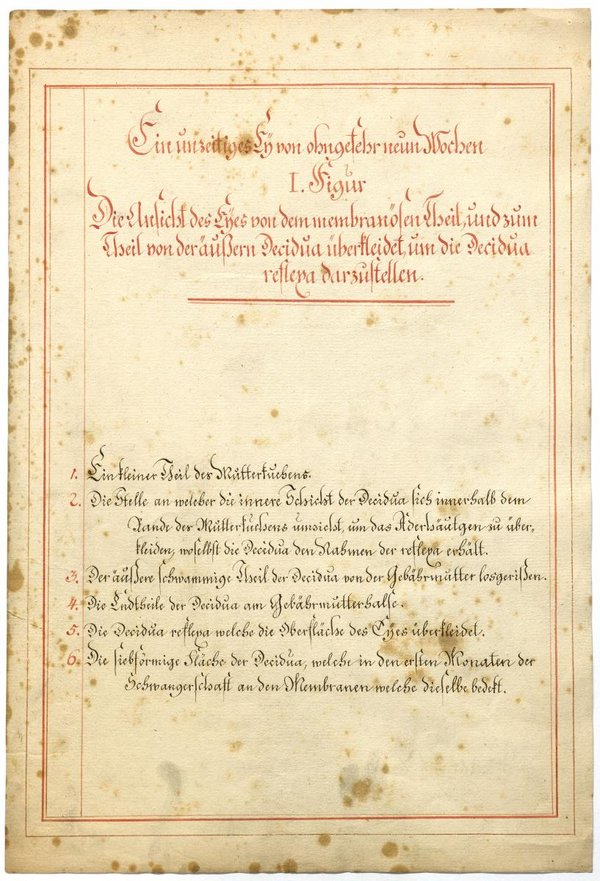 Ein unzeitiges Ey von ohngefehr neun Wochen
I. Figur
Die Ansicht des Eyes von dem membranösen Theil, und zum
Theil von der äußern Decidua überkleidet, um die Decidua
reflexa darzustellen.
1. Ein kleiner Theil des Mutterkuchens.
2. Die Stelle an welcher die innere Schicht der Decidua sich innerhalb dem
Rande des Mutterkuchens umsicht, um das Aderhäutgen zu über,
kleiden, woselbst die Decidua den Nahmen der reflexa erhält.
3. Der äußere schwammige Theil der Decidua von der Gebährmutter losgerißen.
4. Die Endtheile der Decidua am Gebährmutterhalse.
5. Die Decidua reflexa welche die Oberfläche des Eyes überkleidet.
6. Die siebförmige Fläche der Decidua, welche in den ersten Monaten der
Schwangerschaft an den Membranen welche dieselbe bedekt.